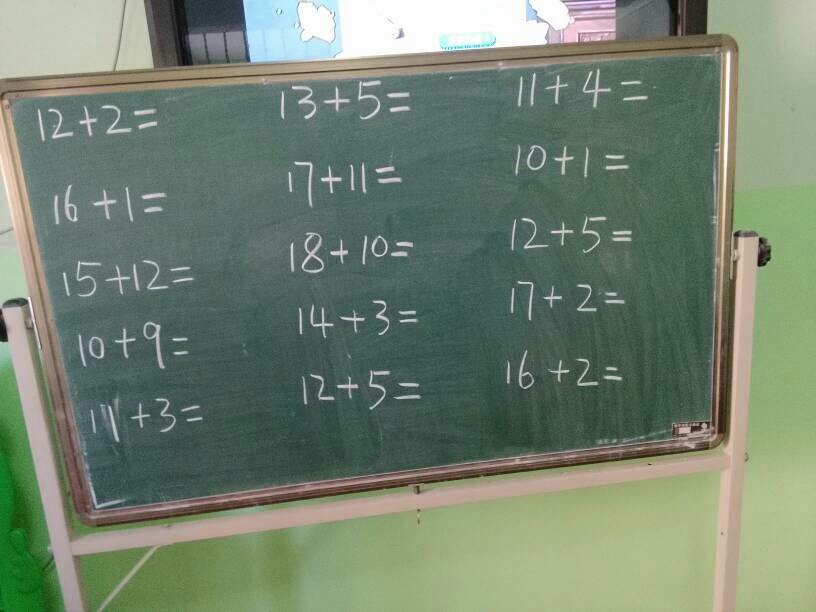 12+2= 13+5= 11+4=
16+1= 17+11= 10+1=
15+12= 18+10= 12+5=
10+9= 14+3= 17+2=
11+3= 12+5= 16+2=